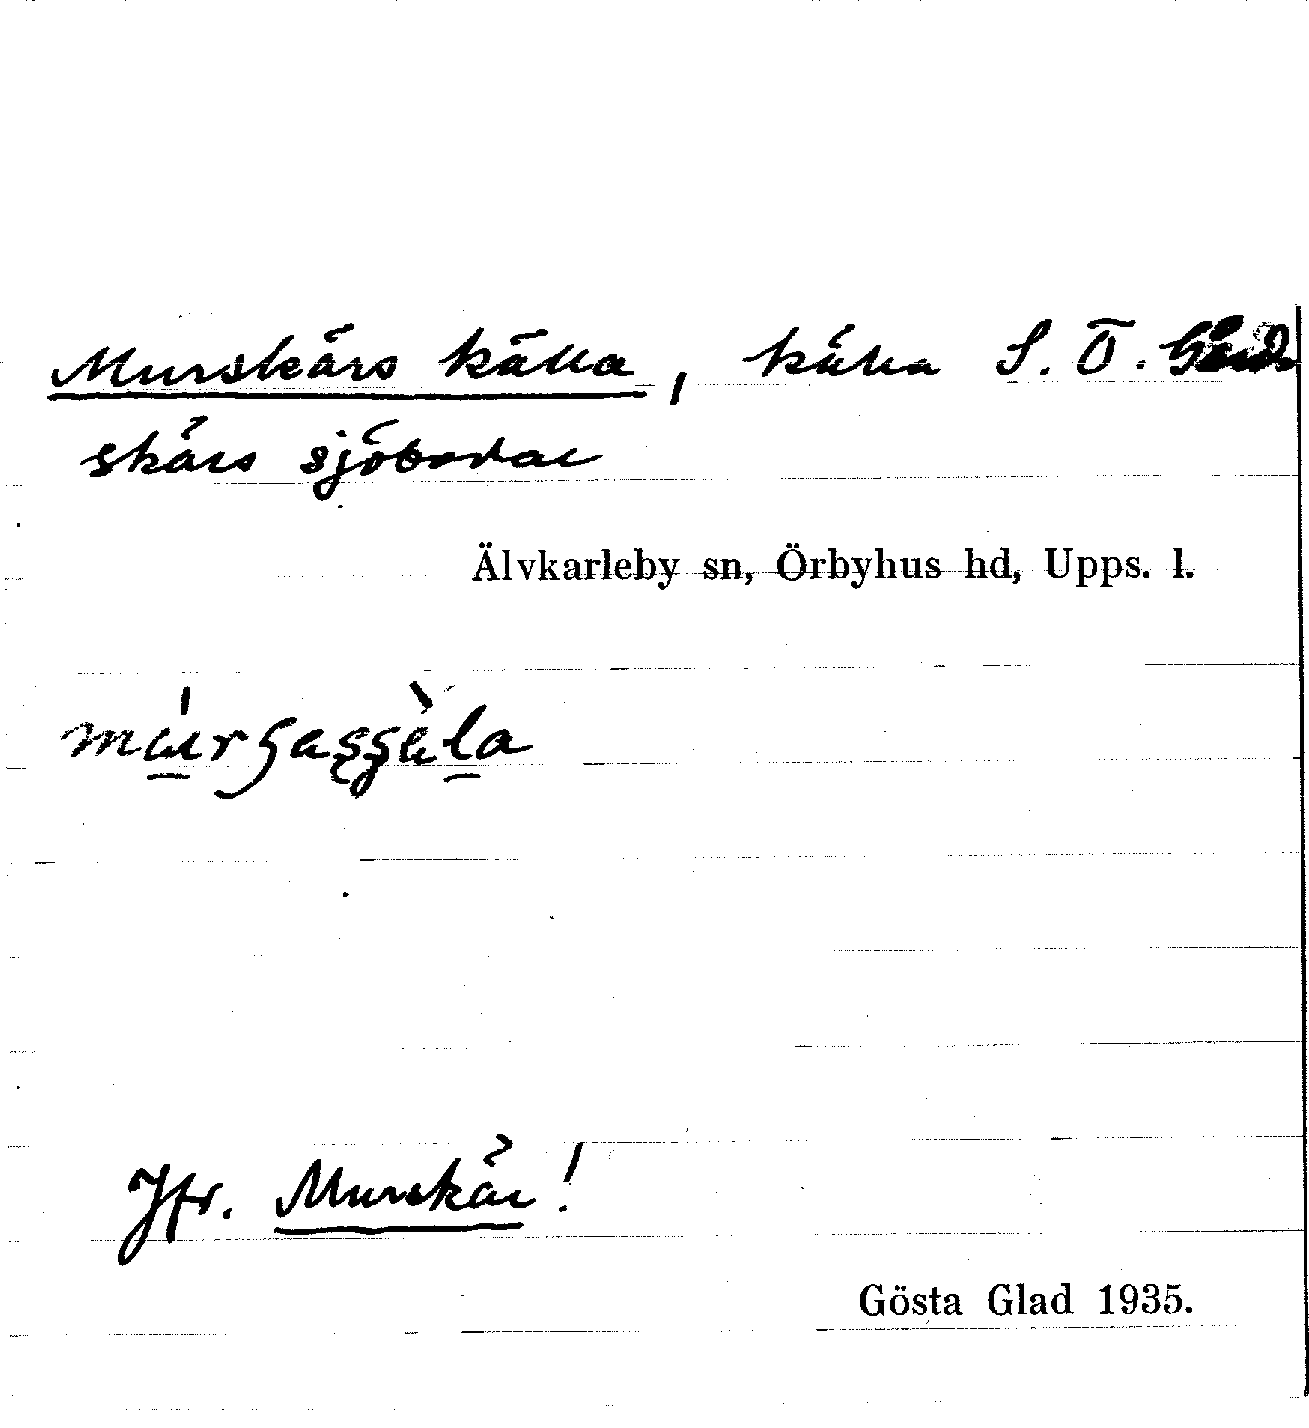 Murskärs källa, källa S. Ö.
skärs sjöbodar
Älvkarleby sn, Örbyhus hd, Upps. l.
Jfr. Murskär!
Gösta Glad 1935.